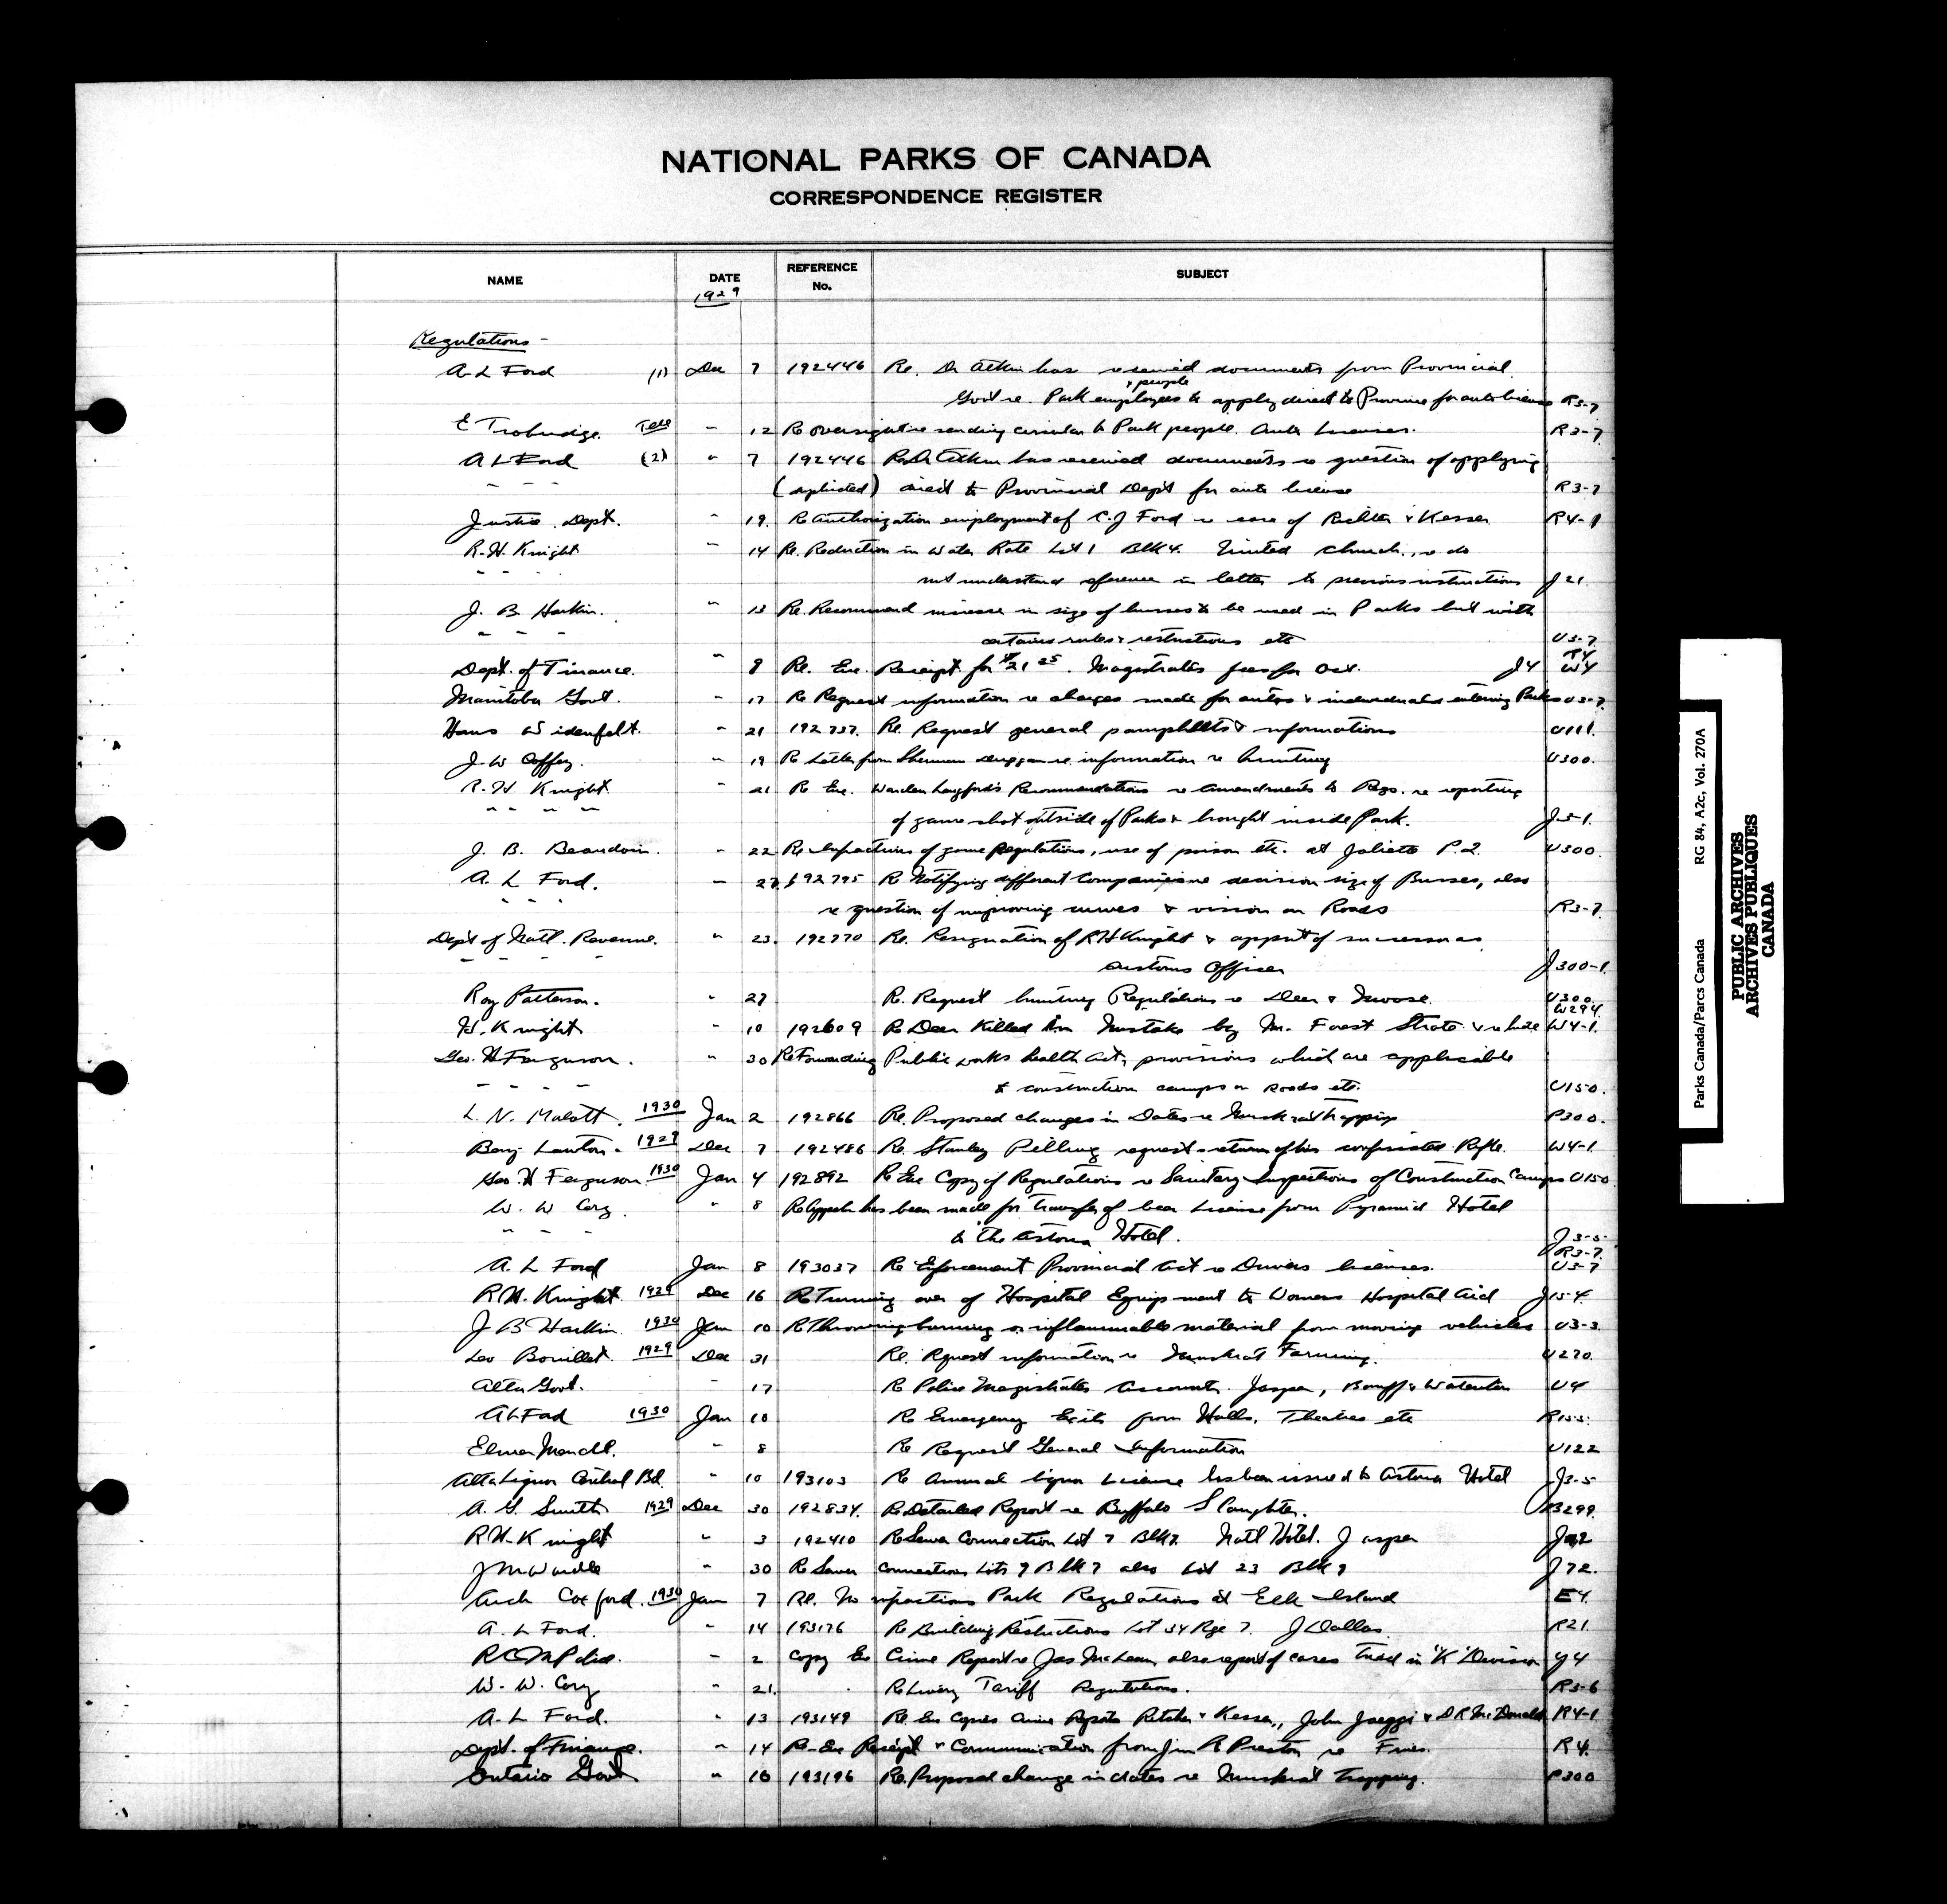 NATIONAL PARKS OF CANADA
CORRESPONDENCE REGISTER
NAME DATE REFERENCE No. SUBJECT
1929
Regulations -
A L Ford (1) Dec 7 192446 Re. Dr Atkin has received documents from Provincial
& people
Govt re. Park employees to apply direct to Province for auto license R3-7
E Trobridge Tele " 12 Re oversight re sending circular to Park people. Auto Licenses. R3-7
A L Ford (2) " 7 192446 Re Dr Atkin has received documents re question of applying
" " " (duplicated) direct to Provincial Dept for auto license R3-7
Justice Dept. " 19. Re Authorization employment of C. J Ford re case of Richter & Kesser R4-1
R. H. Knight " 14 Re. Reduction in Water Rate Lot 1 Blk 4. United Church, re do
" " " not understand reference in letter to previous instructions J21.
J. B Harkin. " 13 Re. Recommend increase in size of busses to be used in Parks but with
" " " certain rules & restrictions etc U3-7
Dept. of Finance. " 9 Re. Enc. Receipt for $21 25. Magistrates fees for Oct. J4 T4 W4
Manitoba Govt. " 17 Re Request information re charges made for autos & individuals entering Parks U3-7.
Hans Widenfelt. " 21 192737. Re. Request general pamphlets & informations U111.
J. W Coffey. " 19 Re Letter from Sherman re. information re hunting U300.
R. H Knight " 21 Re Enc. Warden Langford's Recommendations re Amendments to Regs. re reporting
" " " " of game shot outside of Parks & brought inside Park. J5-1.
J. B. Beaudoin. " 22 Re Infractions of game regulations, use of poison etc. at Joliette P.Q. U300.
A. L Ford. " 27 192795 Re Notifying different Companies re decision size of Busses, also
" " " re question of improving curves & vision on Roads R3-7.
Dept of Natl. Revenue. " 23. 192770 Re. Resignation of R H Knight & appmt of successor as
" " " " Customs Officer J300-1.
Roy Patterson. " 27 Re. Request hunting Regulations re Deer & Moose. U300.
W294.
H. Knight " 10 192609 Re Deer Killed in Mistake by Mr. Forest Strate & re hide W4-1.
Geo. H Ferguson. " 30 Re Forwarding Public works health Act, provisions which are applicable
" " " " to construction camps on roads etc. U150.
L. N. Malott. 1930 Jan 2 192866 Re. Proposed changes in Dates re Muskrat trapping P300.
Benj Lawton. 1929 Dec 7 192486 Re. Stanley Pilling request return of his confiscated Rifle. W4-1.
Geo. H Ferguson 1930 Jan 4 192892 Re Enc Copy of Regulations re Sanitary Inspections of Construction Camps U150.
W. W Cory. " 8 Re Appctn has been made for transfer of beer License from Pyramid Hotel
" " " to the Astoria Hotel. J3-5
R3-7.
A. L Ford Jan 8 193037 Re Enforcement Provincial Act re Drivers licenses. U3-7
R H. Knight 1929 Dec 16 Re Turning over of Hospital Equipment to Womens Hospital Aid J15-4.
J B Harkin 1930 Jan 10 Re Throwing burning or inflammable material from moving vehicles U3-3
Leo Bouillet. 1929 Dec 31 Re. Request information re Muskrat Farming. U270.
Alta Govt. " 17 Re Police Magistrates Accounts. Jasper, Banff & Waterton U4
A L Ford 1930 Jan 10 Re Emergency Exits from Halls, Theatres etc R155.
Elmer Mandl. " 8 Re Request General Information U122
Alta Liquor Control Bd. " 10 193103 Re Annual liquor License has been issued to Astoria Hotel J3-5
A. G. Smith 1929 Dec 30 192834. Re Detailed Report re Buffalo Slaughter. B299.
R H. Knight " 3 192410 Re Sewer Connection Lot 7 Blk 7. Natl Hotel. Jasper
J M Wardle " 30 Re Sewer Connections Lots 9 Blk 7 also Lot 23 Blk 9 J72.
Arch Coxford. 1930 Jan 7 Re. No infractions Park Regulations at Elk Island E4.
A. L Ford. " 14 193176 Re Building Restrictions Lot 34 Rge 7. J Dallas R21.
R C M Police. " 2 Copy Enc Crime Report re Jas McLean, also report of cases tried in "K" Division J4
W. W. Cory " 21. Re Livery Tariff Regulations. R3-6
A. L Ford. " 13 193149 Re. Enc Copies Crime Reports Richter & Kesser, John Jaeggi & D R McDonald R4-1
Dept. of Finance. " 14 Re-Enc Receipt & Communication from Jim R Preston re Fines. R4.
Ontario Govt " 16 193196 Re. Proposed change in dates re Muskrat Trapping. P300
Parks Canada/Parcs Canada RG 84, A2c, Vol. 270A
PUBLIC ARCHIVES
ARCHIVES PUBLIQUES
CANADA